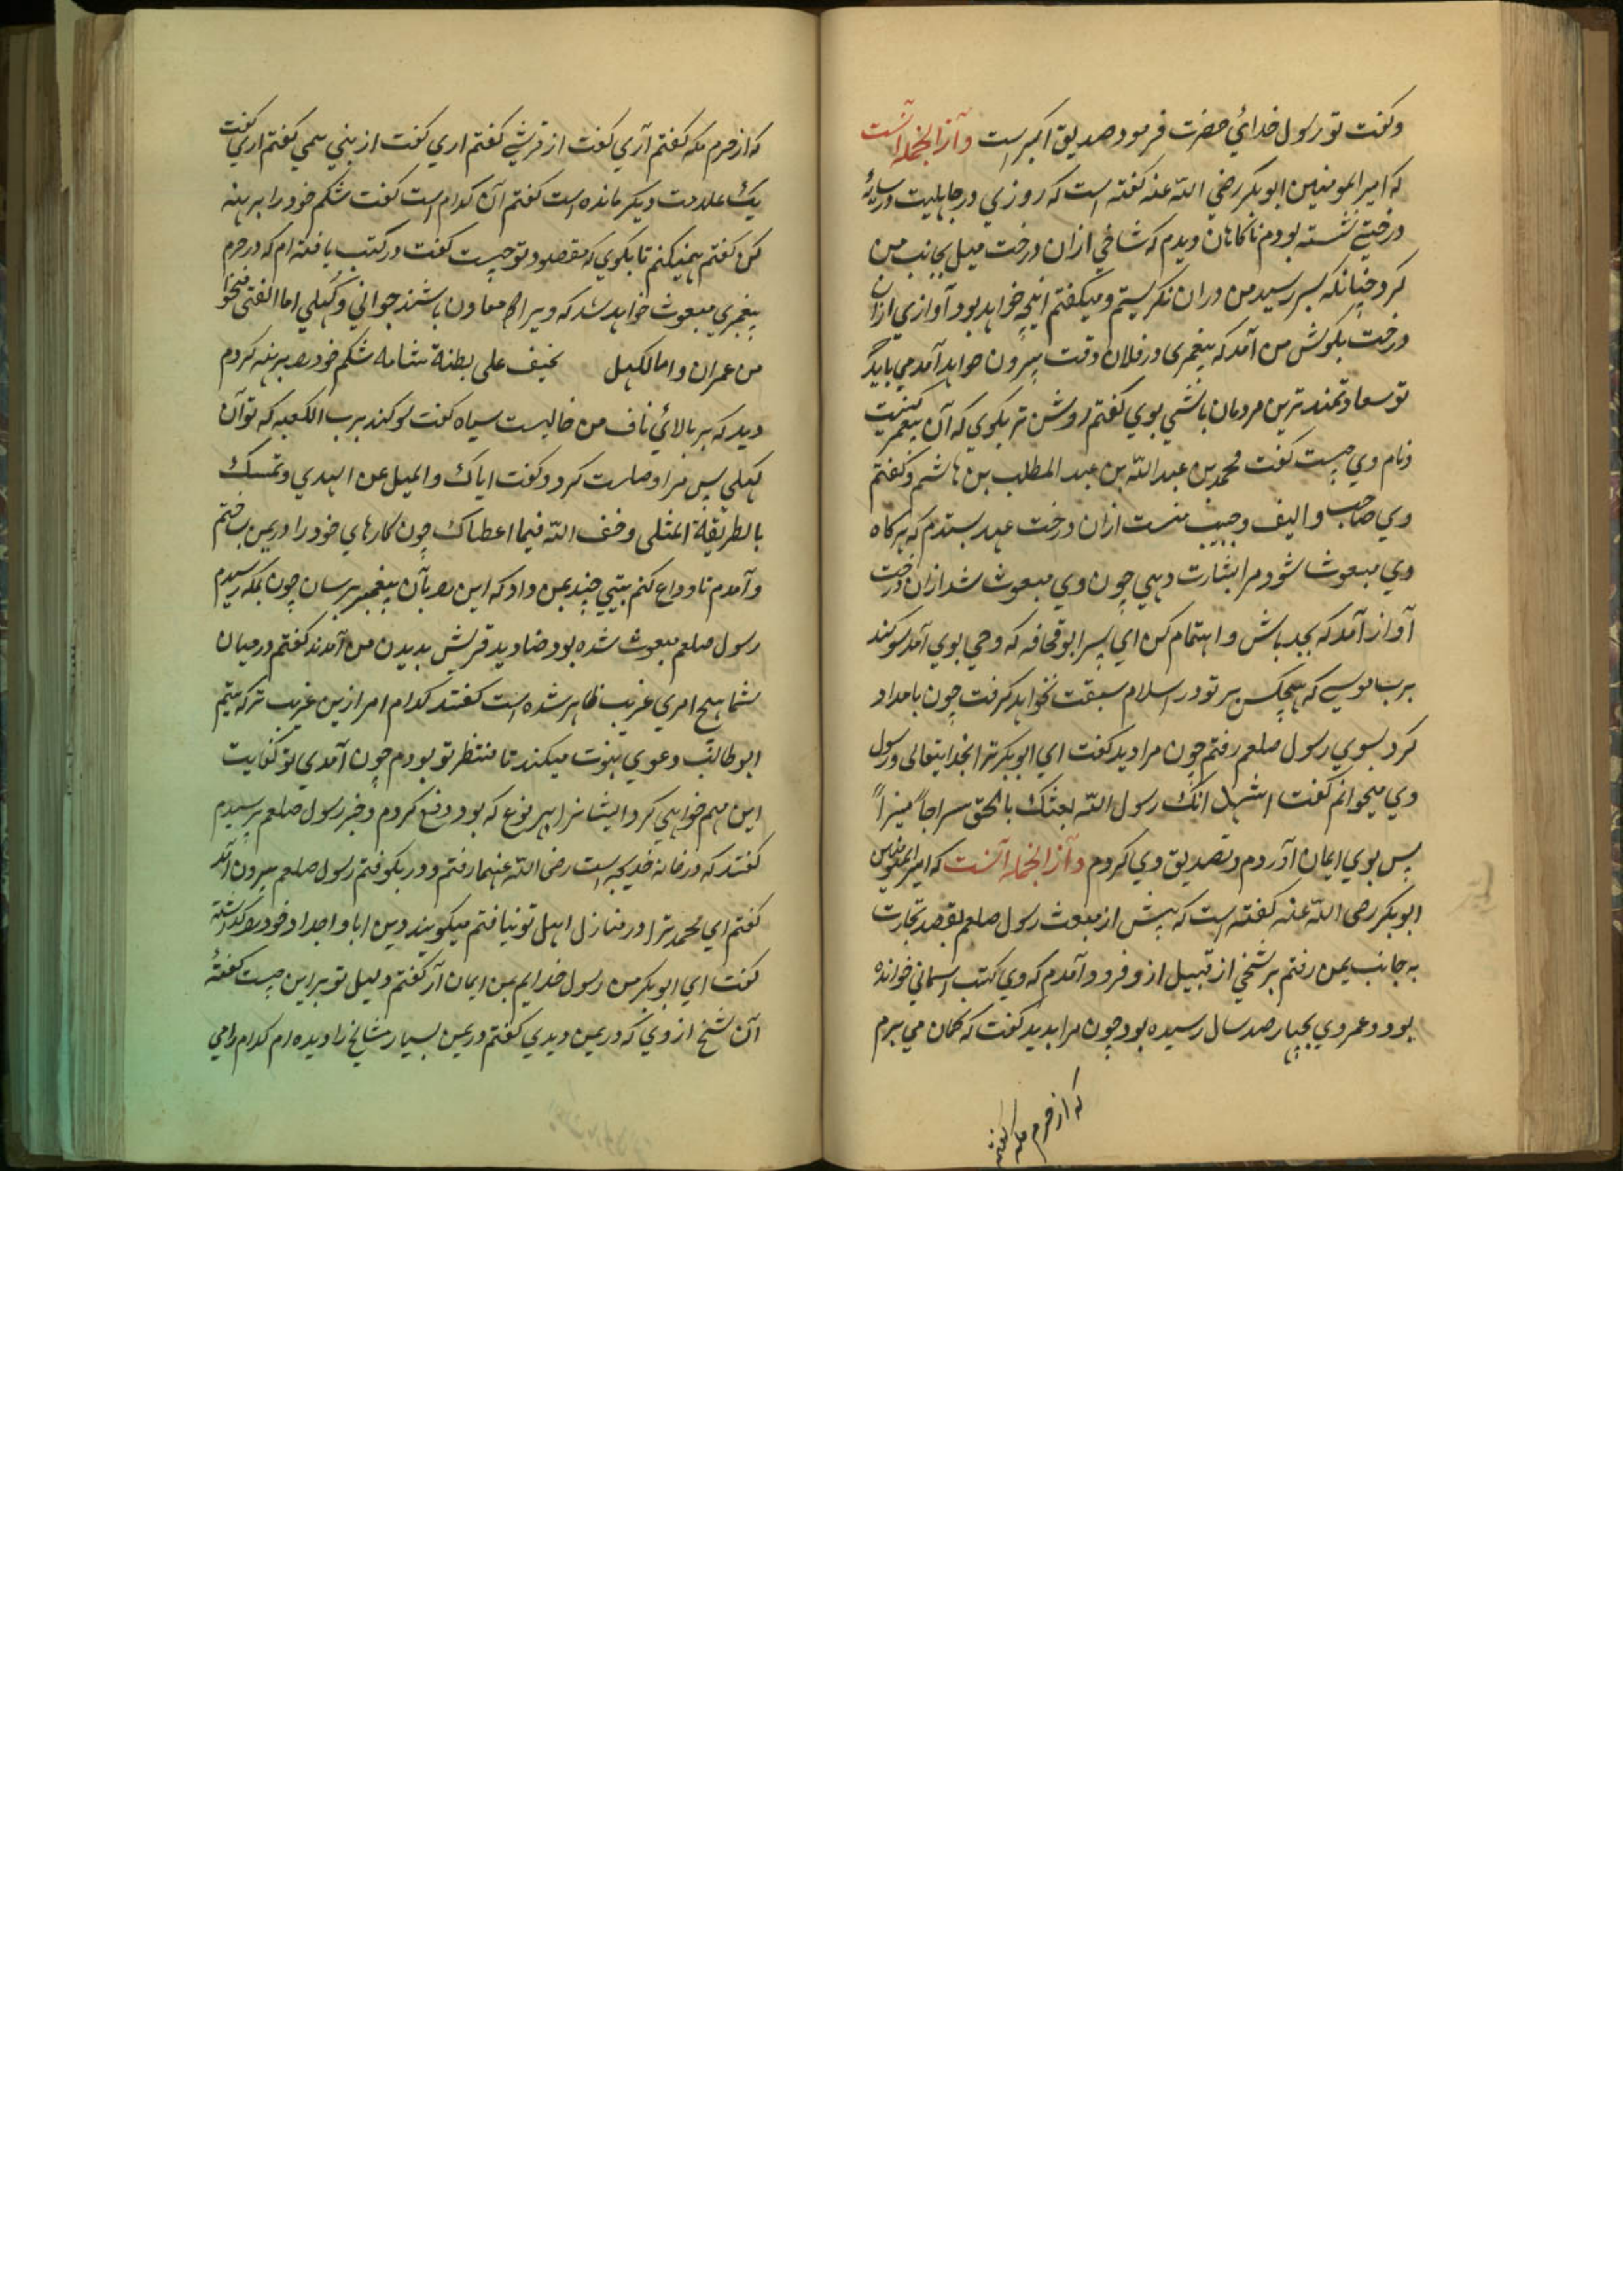 وگفت تو رسول خدائي حضرت فرمود صدیق اکبر است وازانجمله آنست
که امیر المومنین ابوبکر رضي الله عنه گفته است که روزي در جاهلیت در سایهٔ
درختے نشسته بودم ناکاهان دیدم که شاخي ازان درخت میل بجانب من
کرد چنانکه بسر رسید من دران نگریستم ومیگفتم اینچه خواهد بود آوازي ازان
درخت بگوش من آمد که پیغمبری در فلان وقت بیرون خواهد آمد مي باید که
تو سعادتمند ترین مردمان باشي بوي گفتم روشن تر بگوي که آن پیغمبر کیست
ونام وي چیست گفت محمد بن عبدالله بن عبد المطلب بن هاشم وگفتم
وي صاحب والیف وحبیب منست ازان درخت عهد بستدم که هرکاه
وي مبعوث شود مرا بشارت دهي چون وي مبعوث شد ازان درخت
آواز آمد که بجد باش واهتمام کن اي پسر ابو قحافه که وحي بوي آمد سوکند
برب موسے که هیچکس بر تو در اسلام سبقت نخواهد گرفت چون بامداد
کرد بسوي رسول صلعم رفتم چون مرا دید گفت اي ابوبکر ترا بخدایتعالی ورسول
وي میخوانم گفت اشهد انک رسول الله بعثک بالحق سراجاً منیراً
پس بوي ایمان آوردم وتصدیق وي کردم وازانجمله آنست که امیرالمومنین
ابوبکر رضی الله عنه گفته است که پیش از مبعث رسول صلعم بقصد تجارت
به جانب یمن رفتم بر شیخي از قبیل ازد فرود آمدم که وي کتب آسماني خوانده
بود وعمر وي بچهار صد سال رسیده بود چون مرا بدید گفت که کمان مي برم
که از حرم مکه گفتم
که از حرم مکه گفتم آري گفت از قریشے گفتم اري گفت از بني تیمي گفتم اري گفت
یک علامت دیگر مانده است گفتم آن کدام است گفت شکم خود را برهنه
کن گفتم نمیکنم تا بگوي که مقصود تو چیست گفت در کتب یافته ام که در حرم
پیغمبري مبعوث خواهد شد که ویرا معاون باشند جواني وکهلي اما الفتی
من عمران واما لکهل نحیف علی بطنه شامه شکم خود را برهنه کردم
دید که بر بالائي ناف من خالیست سیاه گفت سوکند برب الکعبه که تو آن
کهلي پس مرا وصیت کرد وگفت ایاک والمیل عن الهدي وتمسک
بالطریقة المثلی وخف الله فیما اعطاک چون کارهاي خود را در یمن ساختم
وآمدم تا وداع کنم بیتي چند بمن داد که این را بآن پیغمبر برسان چون بمکه رسیدم
رسول صلعم مبعوث شده بود صنادید قریش بدیدن من آمدند گفتم در میان
شما هیچ امري غریب ظاهر شده است گفتند کدام امر ازین غریب تر که یتیم
ابوطالب دعوي نبوت میکند ما منتظر تو بودم چون آمدي تو کفایت
این مهم خواهي کرد ایشانرا بهر نوع که بود دفع کردم وخبر رسول صلعم پرسیدم
گفتند که در خانه خدیجه است رضی الله عنها رفتم ودر بکوفتم رسول صلعم بیرون آمد
گفتم اي محمد ترا در منازل اهل تو نیافتم میگویند دین ابا واجداد خود را گذاشتهٔ
گفت اي ابوبکر من رسول خدایم بمن ایمان آر گفتم دلیل تو براین چیست گفت
آن شیخ ازدي که در یمن دیدي گفتم در یمن بسیار مشایخ را دیده ام کدام را مي